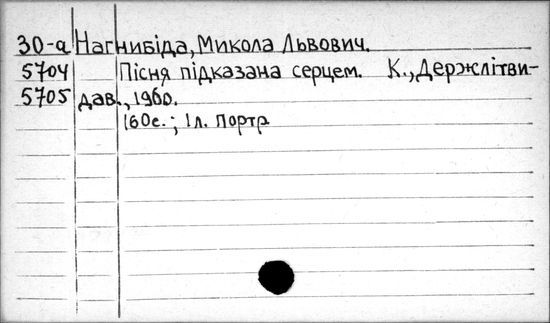 30-а Нагнибіда, Микола Львович.
5704 Пісня підказана серцем. К., Держлітви-
5705 дав., 1960.
160с.; 1л. портр